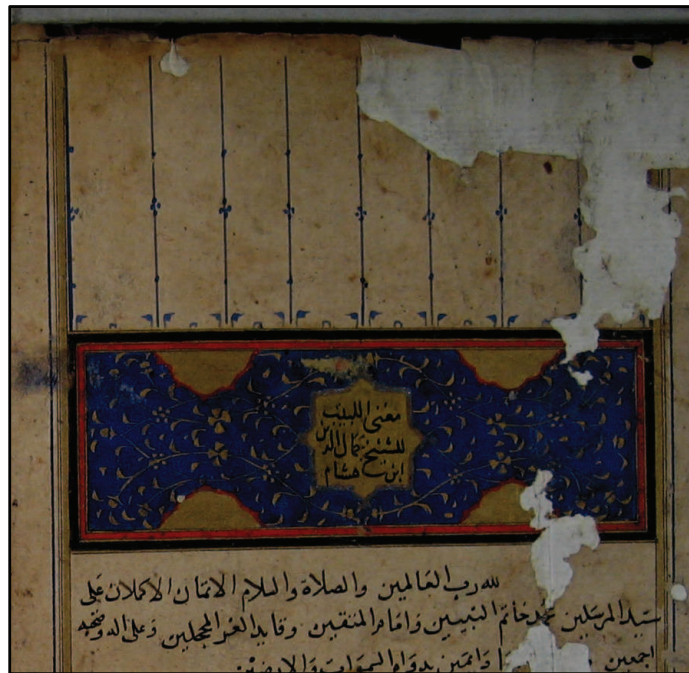 مغنى اللبيب
للشيخ جمال الدين
ابن هشام
لله رب العالمين والصلاة والسلام الاتمان الاكملان على
سيد المرسلين محمد خاتم النبيين وامام المتقين وقايد الغر المحجلين وعلى اله وصحبه
اجمعين دايمين بدوام السموات والارضين